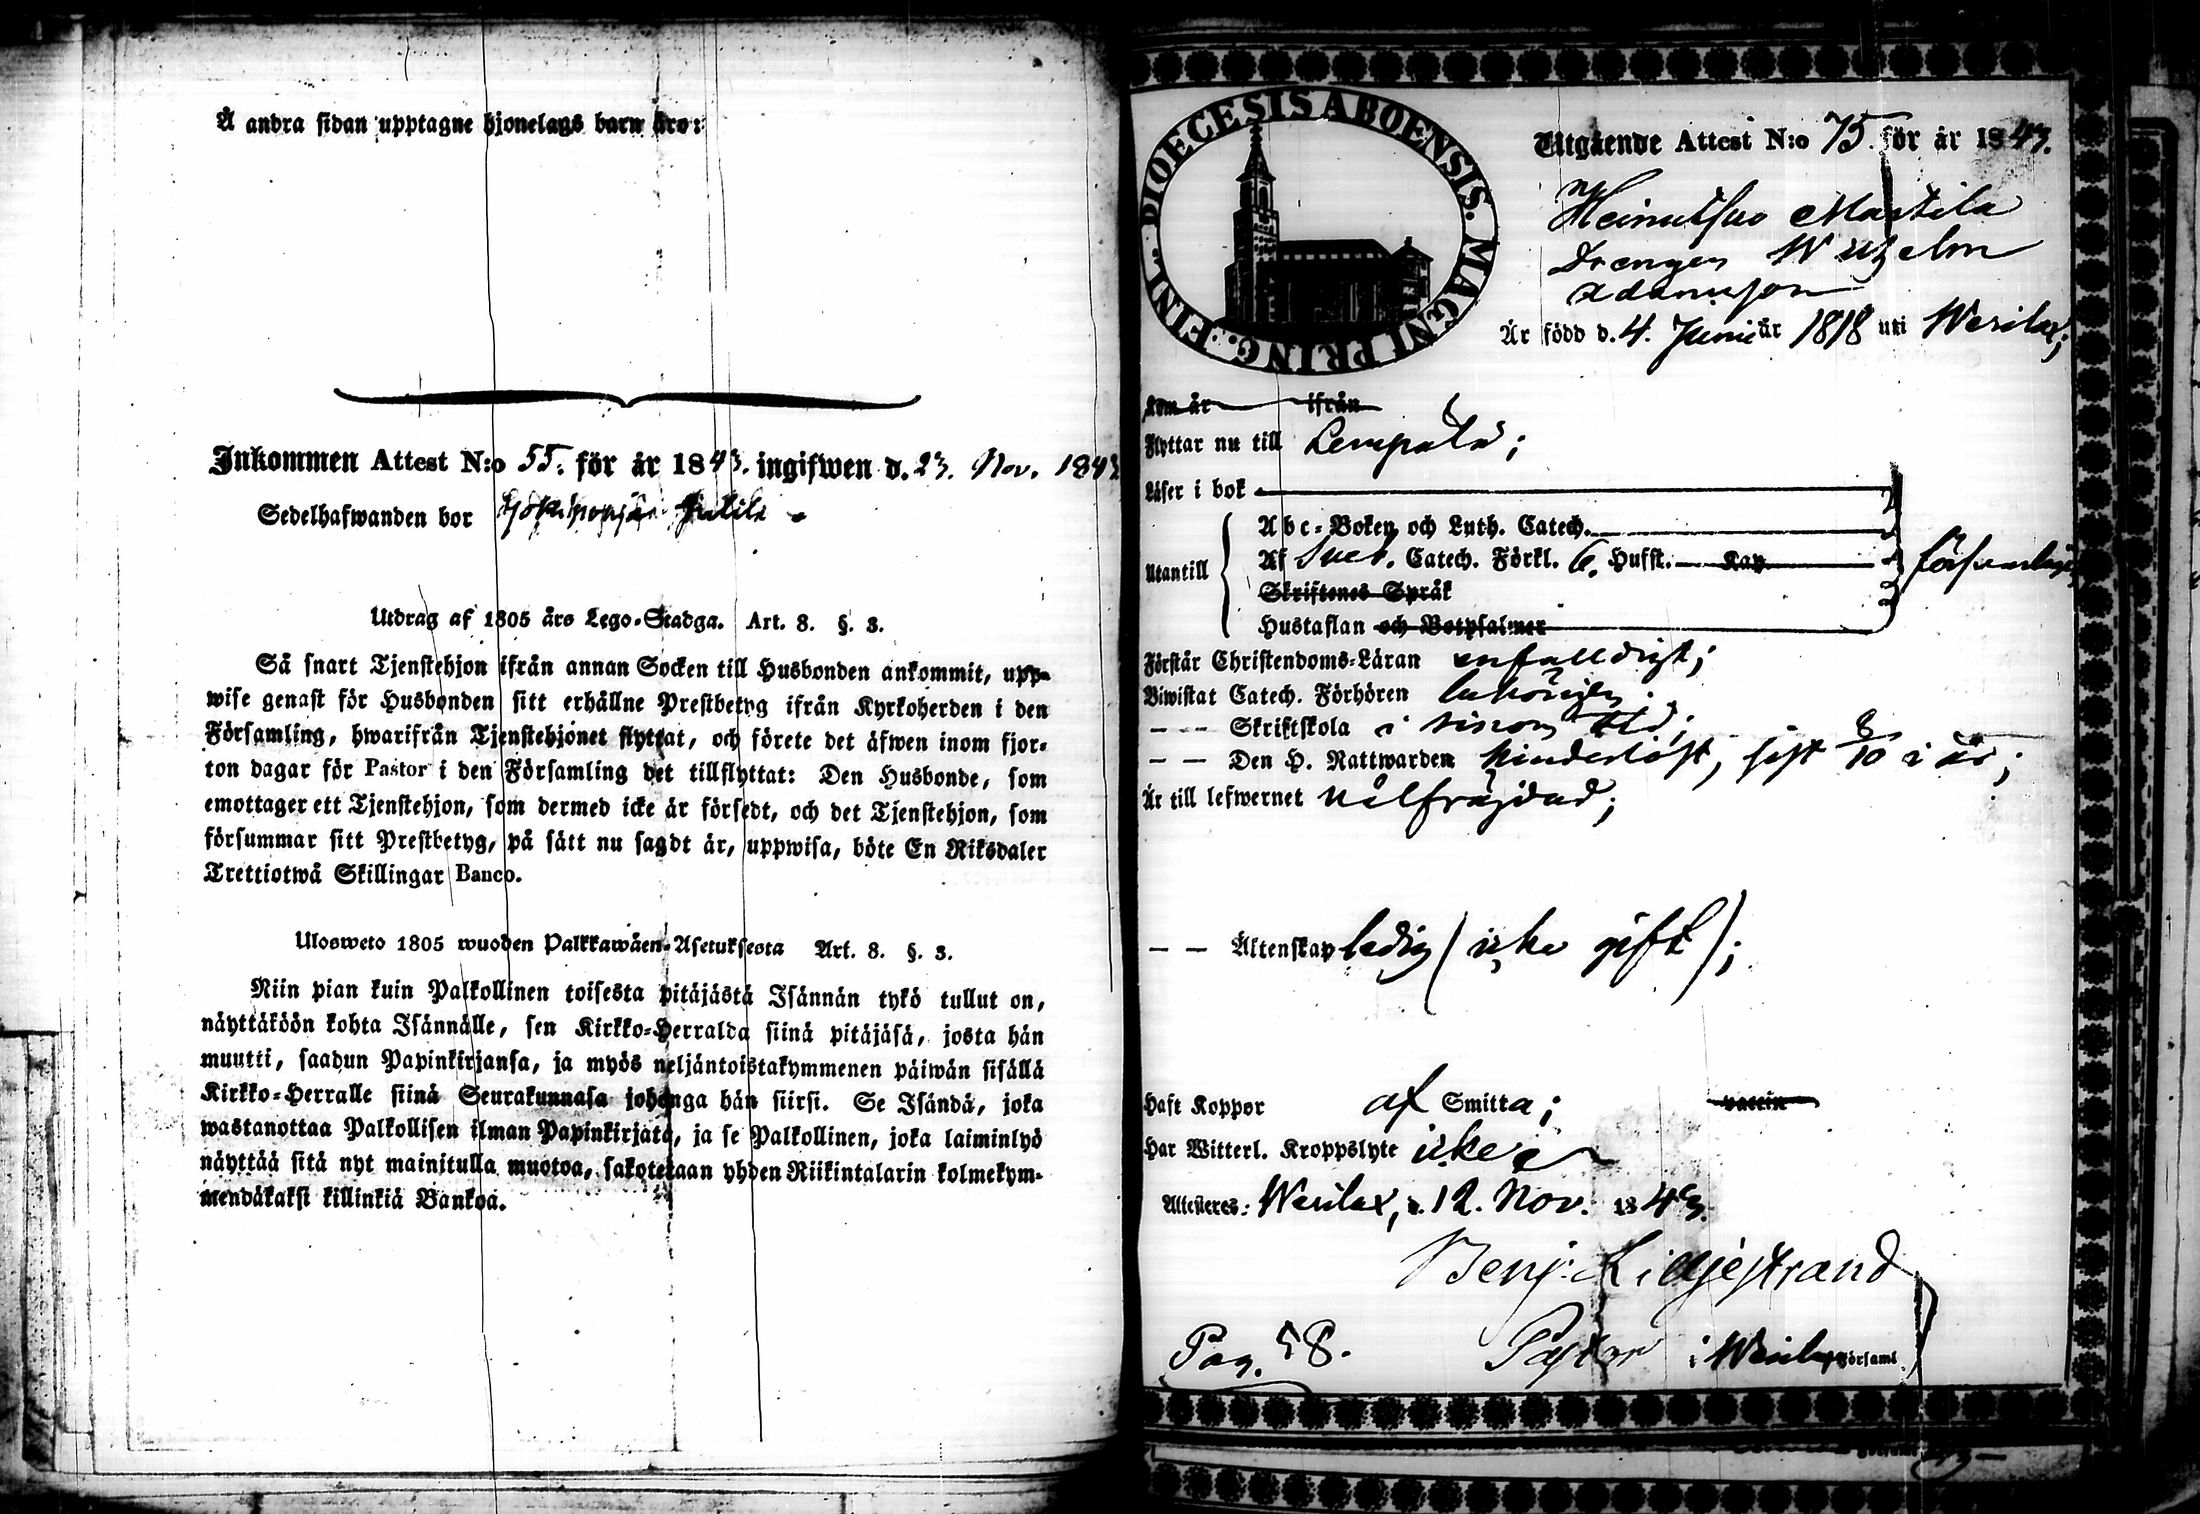 Å andra sidan upptagne hjonelags barn äro:
Inkommen Attest N:o 55. för år 1843. ingifwen d. 23. Nov. 1843
Sedelhafwanden bor
Utdrag af 1805 års Lego-Stadga. Art. 8. §. 3.
Så snart Tjenstehjon ifrån annan Socken till Husbonden ankommit, upp-
wise genast för Husbonden sitt erhållne Prestbetyg ifrån Kyrkoherden i den
Församling, hwarifrån Tjenstehjonet flyttat, och förete det äfwen inom fjor-
ton dagar för Pastor i den Församling det tillflyttat: Den Husbonde, som
emottager ett Tjenstehjon, som dermed icke är försedt, och det Tjenstehjon, som
försummar sitt Prestbetyg, på sätt nu sagdt är, uppwisa, böte En Riksdaler
Trettiotwå Skillingar Banco.
Ulosweto 1805 wuoden Palkkawäen-Asetuksesta Art. 8. §. 3.
Niin pian kuin Palkollinen toisesta pitäjästä Isännän tykö tullut on,
näyttäköön kohta Isännälle, sen Kirkko-Herralda siinä pitäjäsä, josta hän
muutti, saadun Papinkirjansa, ja myös neljäntoistakymmenen päiwän sisällä
Kirkko-Herralle siinä Seurakunnasa johonga hän siirsi. Se Isändä, joka
wastanottaa Palkollisen ilman Papinkirjata, ja se Palkollinen, joka laiminlyö
näyttää sitä nyt mainitulla muotoa, sakotetaan yhden Riikintalarin kolmekym-
mendäkaksi killinkiä Bankoa.
DIOECESIS ABOENSIS. MAGNI PRINC. FINL.
Utgående Attest N:o 75. för år 1843.
Martila
Drengen Wilhelm
Adamsson
Är född d. 4. Junii år 1818 uti Wesilax;
Kom år ifrån
Flyttar nu till Lempälä;
Läser i bok
Utantill
Abc-Boken och Luth. Catech.
Af Sveb. Catech. Förkl. 6. Hufst. Kap.
Skriftenes Språk
Hustaflan och Botpsalmer
försvarligen
Förstår Christendoms-Läran enfalldigt;
Biwistat Catech. Förhören behörigen
— — Skriftskola i sinom tid;
— — Den H. Nattwarden hinderlöst, sist 8/10 i år;
Är till lefwernet välfräjdad;
— — Äktenskap ledig (icke gift);
Haft Koppor af Smitta; vaccin
Har Witterl. Kroppslyte icke
Attesteres: Wesilax, d. 12. Nov. 1843.
Benj. Lilljestrand
Pag. 58. Pastor i Wesilax Församl.